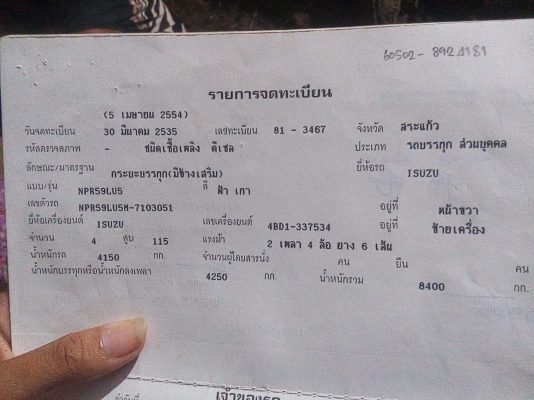 60502-8924181
รายการจดทะเบียน
(5 เมษายน 2554)
วันจดทะเบียน 30 มีนาคม 2535 เลขทะเบียน 81 - 3467 จังหวัด สระแก้ว
รหัสตรวจสภาพ - ชนิดเชื้อเพลิง ดีเซล ประเภท รถบรรทุก ส่วนบุคคล
ลักษณะ/มาตรฐาน กระยะบรรทุก(มีข้างเสริม) ยี่ห้อรถ ISUZU
แบบ/รุ่น NPR59LU5 สี ฟ้า เทา
เลขตัวรถ NPR59LU5M-7103051 อยู่ที่ หน้าขวา
ยี่ห้อเครื่องยนต์ ISUZU เลขเครื่องยนต์ 4BD1-337534 อยู่ที่ ซ้ายเครื่อง
จำนวน 4 สูบ 115 แรงม้า 2 เพลา 4 ล้อ ยาง 6 เส้น
น้ำหนักรถ 4150 กก. จำนวนผู้โดยสารนั่ง คน ยืน คน
น้ำหนักบรรทุกหรือน้ำหนักลงเพลา 4250 กก. น้ำหนักรวม 8400 กก.
เจ้าของรถ